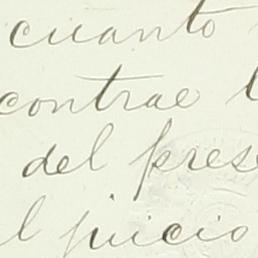 cuanto
contrae
del
juicio